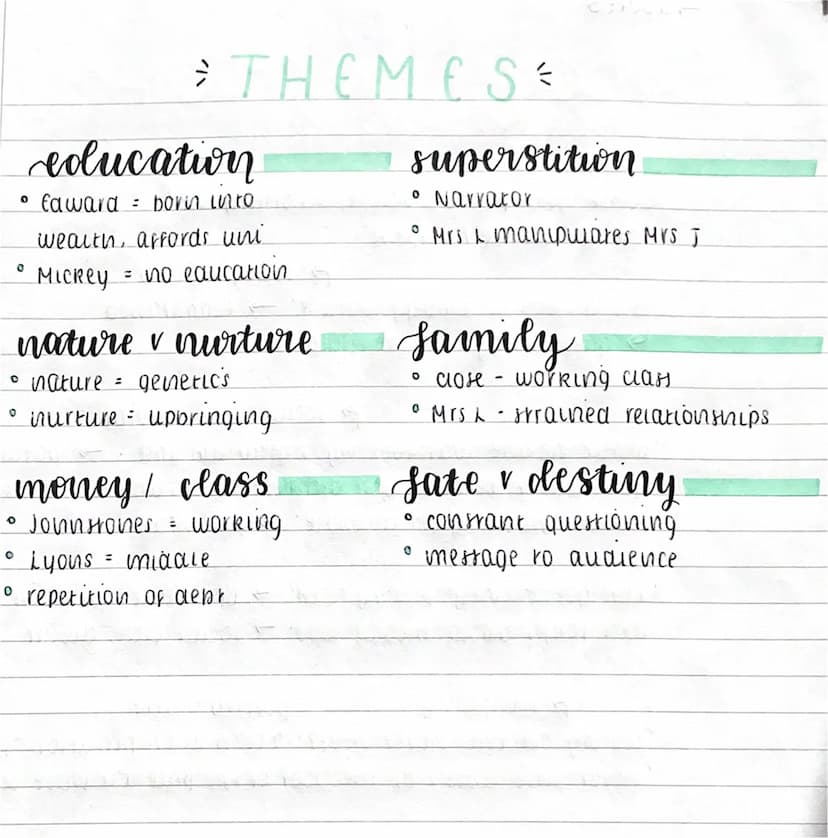 THEMES
education
• Edward = born into
wealth, affords uni
• Mickey = no education
superstition
• Narrator
• Mrs L manipulates Mrs J
nature v nurture
• nature = genetics
• nurture = upbringing
family
• close - working class
• Mrs L - strained relationships
money / class
• Johnstones = working
• Lyons = middle
• repetition of debt
fate v destiny
• constant questioning
• message to audience